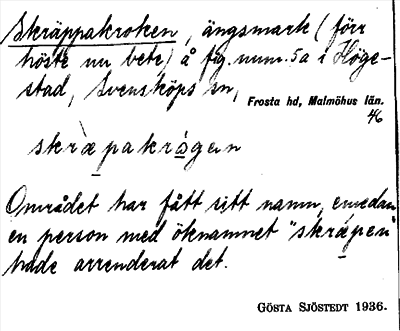 Skräppakroken, ängsmark (förr
höste nu bete) å fig. num. 5a i Höge-
stad, Svensköps sn,
Frosta hd, Malmöhus län.
46
skræpakrågan
Området har fått sitt namn, emedan
en person med öknamnet "skræpen"
hade arrenderat det.
GÖSTA SJÖSTEDT 1936.